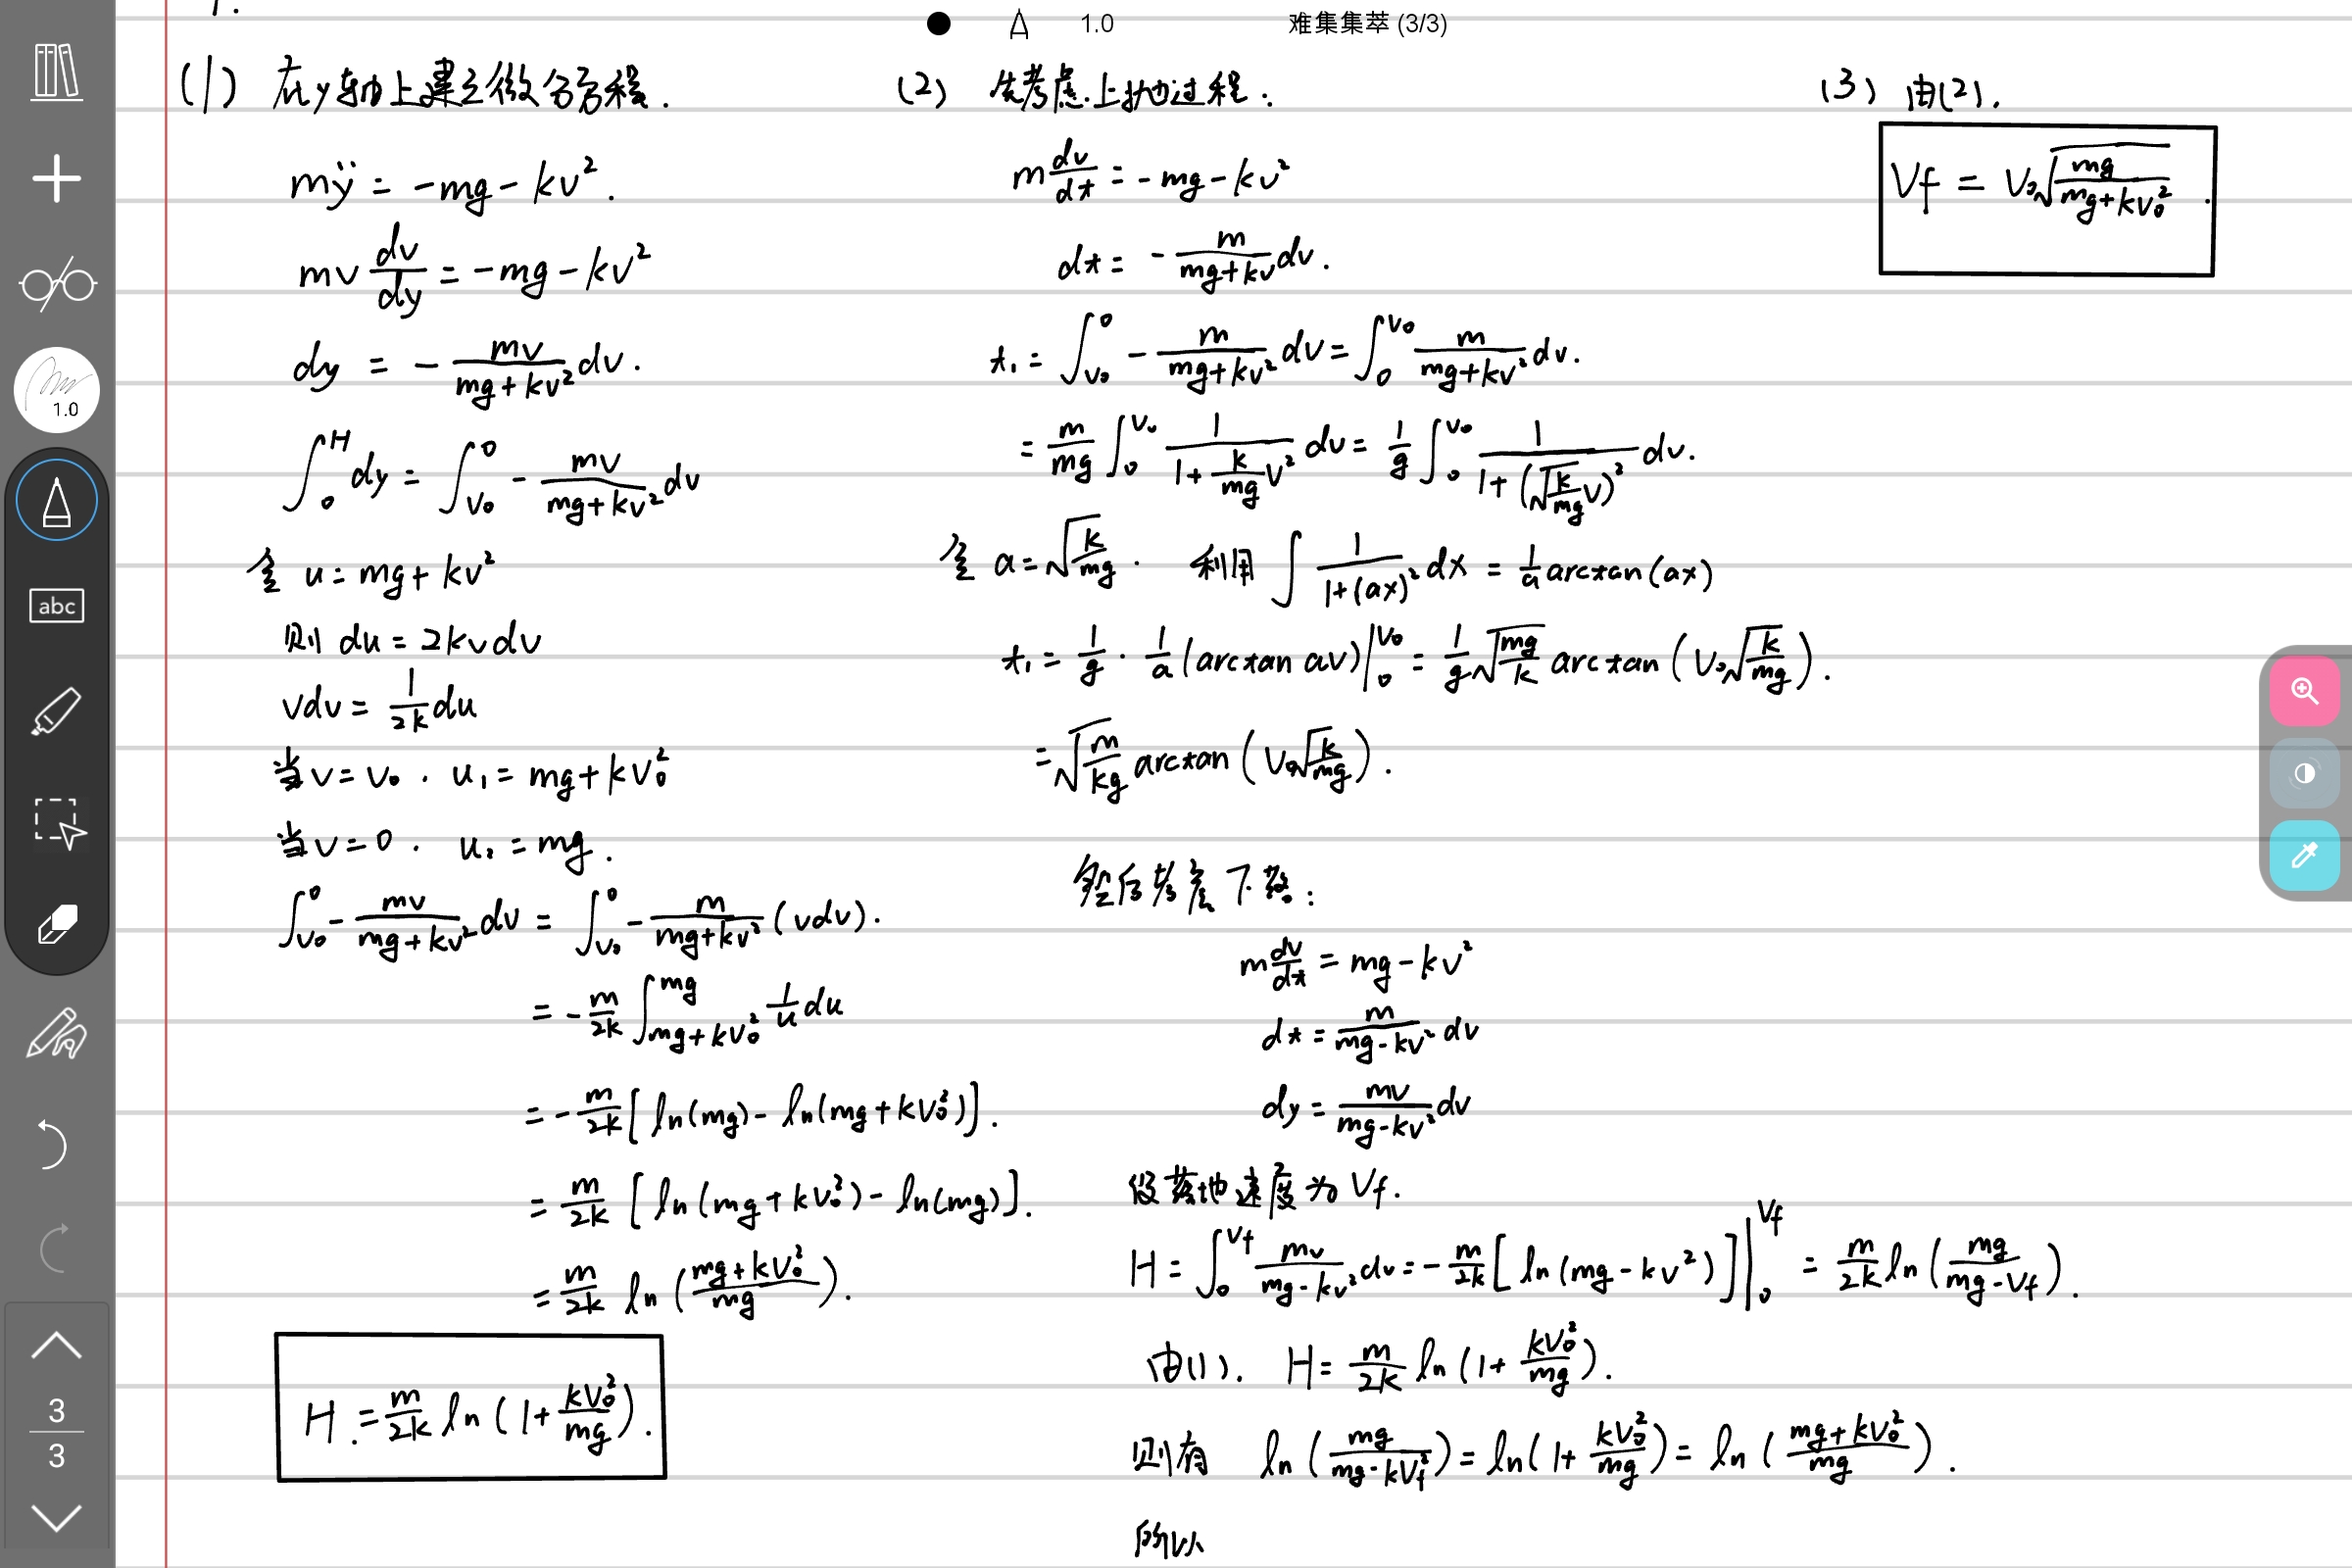 1.0 难集集萃 (3/3)
1.0
abc
3
3
(1) 在y轴上建立微分方程.
mÿ = -mg - kv².
mv dv/dy = -mg - kv²
dy = - mv/(mg+kv²) dv.
∫₀^H dy = ∫_{v₀}^0 - mv/(mg+kv²) dv
令 u = mg + kv²
则 du = 2kvdv
vdv = 1/(2k) du
当 v = v₀. u₁ = mg + kv₀²
当 v = 0. u₂ = mg.
∫_{v₀}^0 - mv/(mg+kv²) dv = ∫_{v₀}^0 - m/(mg+kv²) (vdv).
= - m/(2k) ∫_{mg+kv₀²}^{mg} 1/u du
= - m/(2k) [ln(mg) - ln(mg+kv₀²)].
= m/(2k) [ln(mg+kv₀²) - ln(mg)].
= m/(2k) ln((mg+kv₀²)/mg).
H = m/(2k) ln(1 + kv₀²/mg).
(2) 先考虑上抛过程:
m dv/dt = -mg - kv²
dt = - m/(mg+kv) dv.
t₁ = ∫_{v₀}^0 - m/(mg+kv²) dv = ∫₀^{v₀} m/(mg+kv²) dv.
= m/mg ∫₀^{v₀} 1/(1 + k/mg v²) dv = 1/g ∫₀^{v₀} 1/(1 + (√(k/mg) v)²) dv.
令 a = √(k/mg). 利用 ∫ 1/(1+(ax)²) dx = 1/a arctan(ax)
t₁ = 1/g · 1/a (arctan av)|₀^{v₀} = 1/g √(mg/k) arctan(v₀√(k/mg)).
= √(m/kg) arctan(v₀√(k/mg)).
然后考虑下落:
m dv/dt = mg - kv²
dt = m/(mg-kv²) dv
dy = mv/(mg-kv²) dv
设落地速度为 Vf.
H = ∫₀^{Vf} mv/(mg-kv²) dv = - m/(2k) [ln(mg-kv²)]|₀^{Vf} = m/(2k) ln(mg/(mg-Vf)).
由(1). H = m/(2k) ln(1 + kv₀²/mg).
则有 ln(mg/(mg-kVf²)) = ln(1 + kv₀²/mg) = ln((mg+kv₀²)/mg).
所以
(3) 由(2).
Vf = V₀√(mg/(mg+kv₀²)).